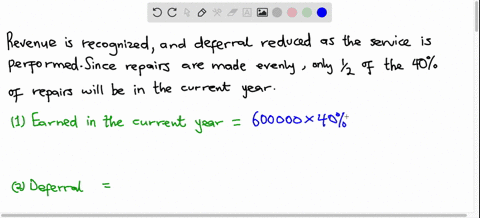 Revenue is recognized, and deferral reduced as the service is
performed. Since repairs are made evenly, only 1/2 of the 40%
of repairs will be in the current year.
(1) Earned in the current year = 600000 × 40%
(2) Deferral =